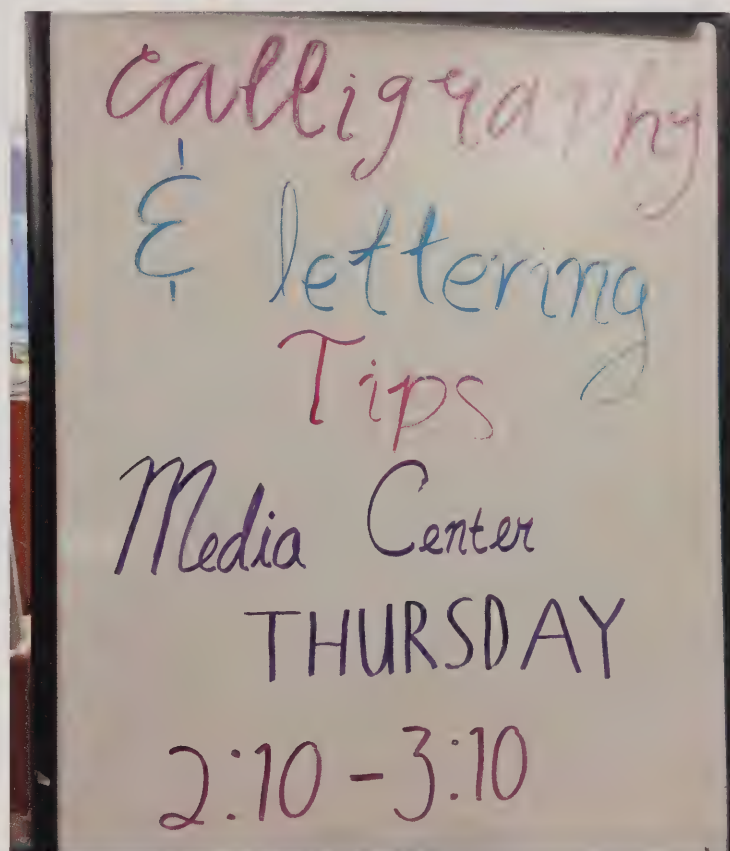 calligraphy
& lettering
Tips
Media Center
THURSDAY
2:10 - 3:10